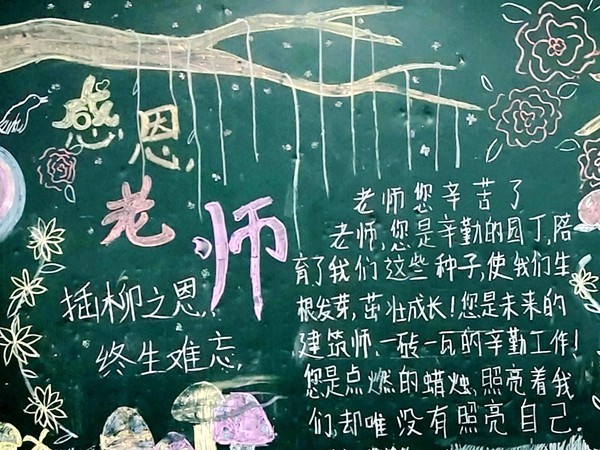 感恩
老师
插柳之恩,
终生难忘,
老师您辛苦了
老师,您是辛勤的园丁,陪
育了我们这些种子,使我们生
根发芽,茁壮成长!您是未来的
建筑师、一砖一瓦的辛勤工作!
您是点燃的蜡烛,照亮着我
们,却唯没有照亮自己.